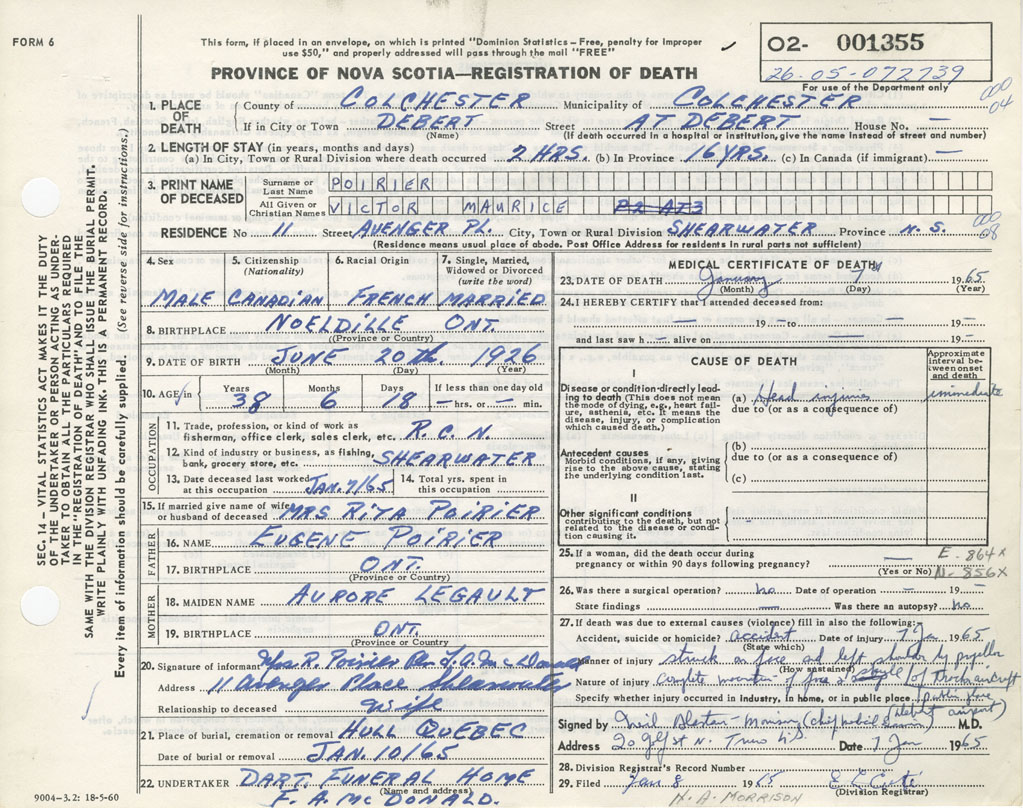 FORM 6
This form, if placed in an envelope, on which is printed "Dominion Statistics – Free, penalty for improper
use $50," and properly addressed will pass through the mail "FREE"
02- 001355
26-05-072739
For use of the Department only
PROVINCE OF NOVA SCOTIA—REGISTRATION OF DEATH
000
04
1. PLACE OF DEATH County of COLCHESTER Municipality of COLCHESTER
If in City or Town DEBERT Street AT DEBERT House No. —
(Name) (If death occurred in a hospital or institution, give the name instead of street and number)
2. LENGTH OF STAY (in years, months and days)
(a) In City, Town or Rural Division where death occurred 2 HRS. (b) In Province 16 YRS. (c) In Canada (if immigrant) —
3. PRINT NAME OF DECEASED Surname or Last Name POIRIER
All Given or Christian Names VICTOR MAURICE P2 AT3
RESIDENCE No 11 Street AVENGER PL. City, Town or Rural Division SHEARWATER Province N. S.
000
08
(Residence means usual place of abode. Post Office Address for residents in rural parts not sufficient)
4. Sex 5. Citizenship (Nationality) 6. Racial Origin 7. Single, Married, Widowed or Divorced (write the word)
MALE CANADIAN FRENCH MARRIED
8. BIRTHPLACE NOELDILLE ONT.
((Province or Country)
9. DATE OF BIRTH JUNE 20th 1926
(Month) (Day) (Year)
10. AGE in Years 38 Months 6 Days 18 If less than one day old — hrs. or — min.
OCCUPATION
11. Trade, profession, or kind of work as
fisherman, office clerk, sales clerk, etc. R.C.N.
12. Kind of industry or business, as fishing,
bank, grocery store, etc. SHEARWATER
13. Date deceased last worked at this occupation JAN. 7/65 14. Total yrs. spent in this occupation
15. If married give name of wife
or husband of deceased MRS RITA POIRIER
FATHER
16. NAME EUGENE POIRIER
17. BIRTHPLACE ONT.
(Province or Country)
MOTHER
18. MAIDEN NAME AURORE LEGAULT
19. BIRTHPLACE ONT.
(Province or Country
20. Signature of informant Mrs R. Poirier Per F. A. McDonald
Address 11 Avenger Place Shearwater
Relationship to deceased wife
21. Place of burial, cremation or removal HULL QUEBEC
Date of burial or removal JAN. 10/65
22. UNDERTAKER DART. FUNERAL HOME
(Name and address)
F. A. McDONALD.
9004-3.2: 18-5-60
MEDICAL CERTIFICATE OF DEATH
23. DATE OF DEATH January 7th 1965
(Month) (Day) (Year)
24. I HEREBY CERTIFY that I attended deceased from:
— 19 — to — 19 —
and last saw h — alive on — 19 —
CAUSE OF DEATH
Approximate interval between onset and death
I
Disease or condition directly leading
to death (This does not mean
the mode of dying, e.g., heart failure,
asthenia, etc. It means the
disease, injury, or complication
which caused death.)
(a) Head injuries immediate
due to (or as a consequence of)
Antecedent causes
Morbid conditions, if any, giving
rise to the above cause, stating
the underlying condition last.
(b)
due to (or as a consequence of)
(c)
II
Other significant conditions
contributing to the death, but not
related to the disease or condition
causing it.
25. If a woman, did the death occur during
pregnancy or within 90 days following pregnancy? —
(Yes or No)
E - 864x
N - 856X
26. Was there a surgical operation? no Date of operation — 19 —
State findings — Was there an autopsy? no
27. If death was due to external causes (violence) fill in also the following:
Accident, suicide or homicide? accident Date of injury 7 Jan 1965
(State which)
Manner of injury struck on face and left shoulder by propellor
(How sustained)
Nature of injury complete of face & of Tracker aircraft
Specify whether injury occurred in industry, in home, or in public place public place
(debert airport)
Signed by Neil M.D.
Address 20 Golf St N. Truro N.S. Date 7 Jan 1965
28. Division Registrar's Record Number
29. Filed Jan 8 1965
(Division Registrar)
N. A. MORRISON
SEC. 14 – VITAL STATISTICS ACT MAKES IT THE DUTY
OF THE UNDERTAKER OR PERSON ACTING AS UNDERTAKER
TO OBTAIN ALL THE PARTICULARS REQUIRED
IN THE "REGISTRATION OF DEATH" AND TO FILE THE
SAME WITH THE DIVISION REGISTRAR WHO SHALL ISSUE THE BURIAL PERMIT.
WRITE PLAINLY WITH UNFADING INK. THIS IS A PERMANENT RECORD.
Every item of information should be carefully supplied. (See reverse side for instructions.)